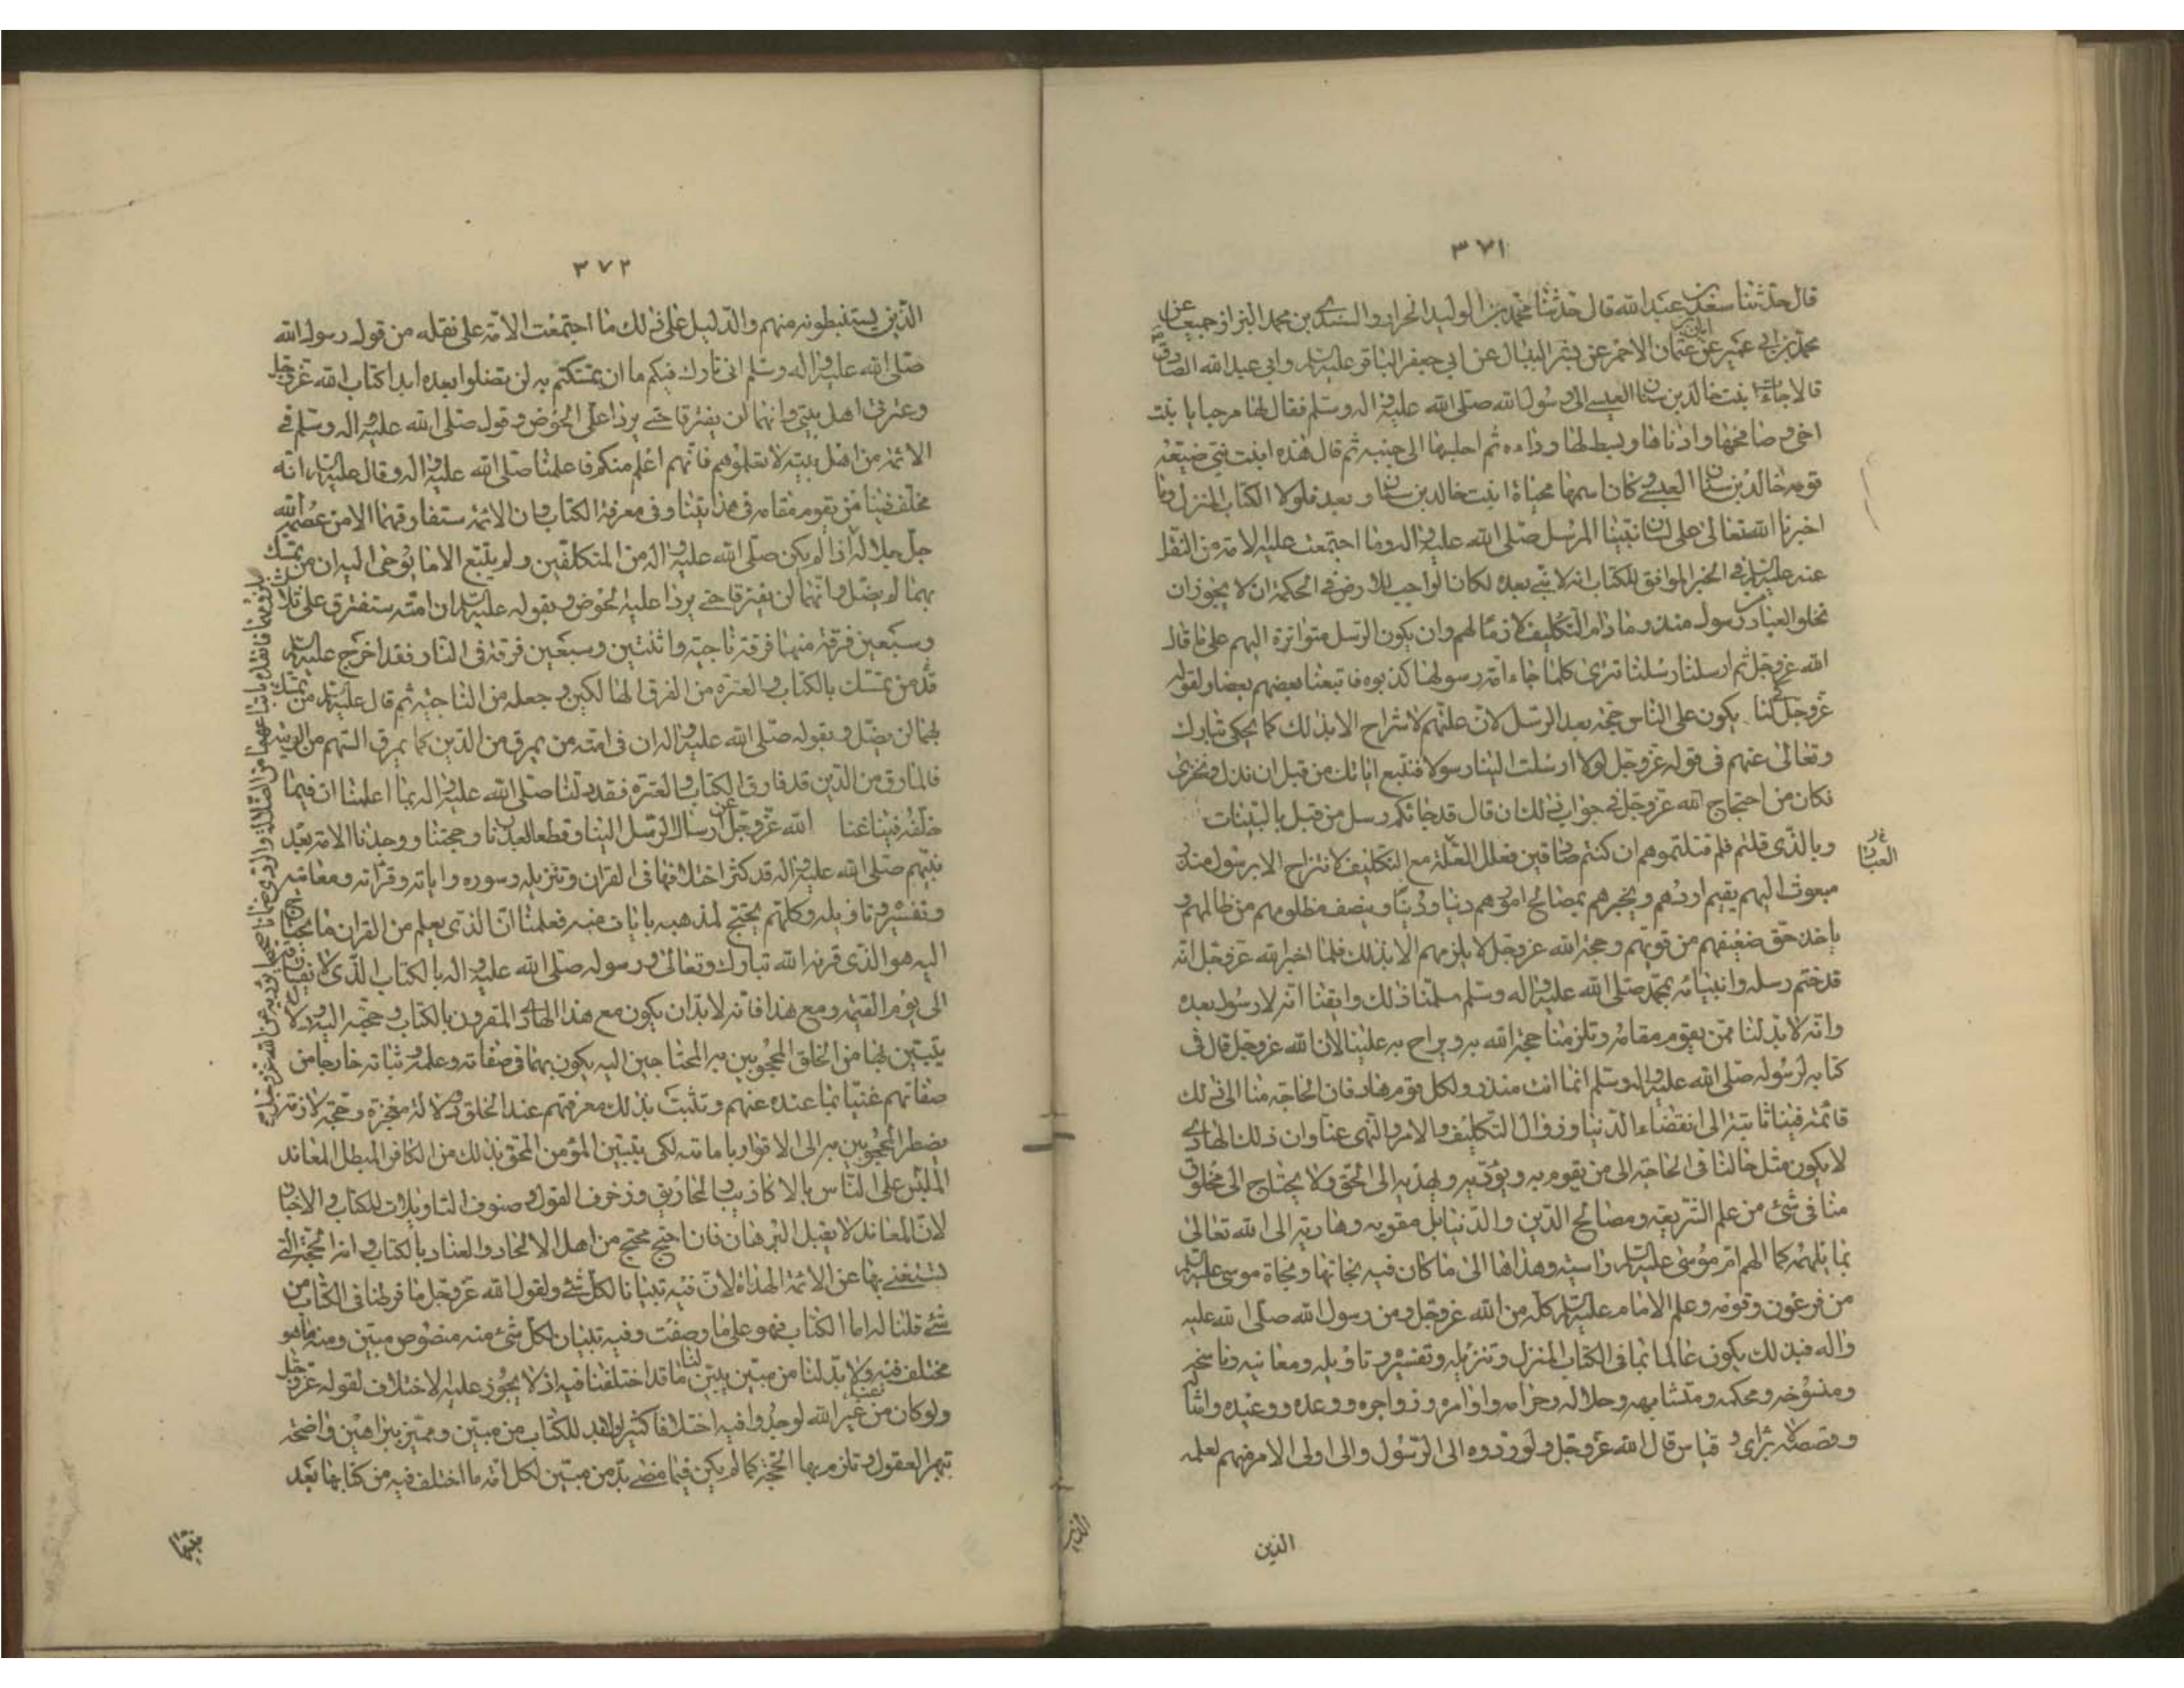 ٣٧١
قال حدثنا سعد بن عبد الله قال حدثنا محمد بن الوليد الخزاز والسندى بن محمد البزاز جميعا عن
محمد بن ابي عمير عن ابان بن عثمان الاحمر عن بشير النبال عن ابي جعفر الباقر عليه السلم وابي عبد الله الصادق
قالا جاءت ابنت خالد بن سنان العبسى الى رسول الله صلى الله عليه واله وسلم فقال لها مرحبا يا بنت
اخى وصافحها وادناها وبسط لها رداءه ثم اجلسها الى جنبه ثم قال هذه ابنت نبى ضيعه
قومه خالد بن سنان العبسى وكان اسمها محياة ابنت خالد بن سنان وبعد فلولا الكتاب المنزل وما
اخبرنا الله تعالى على لسان نبينا المرسل صلى الله عليه واله وما اجتمعت عليه الامة من النقل
عنه عليه السلم فى الخبر الموافق للكتاب انه لا نبى بعده لكان الواجب فى الحكمة ان لا يجوز ان
تخلو العباد من رسول منذر ما دام التكليف لازما لهم وان يكون الرسل متواترة اليهم على ما قال
الله عز وجل ثم ارسلنا رسلنا تترى كلما جاء امة رسولها كذبوه فاتبعنا بعضهم بعضا ولقوله
عز وجل لئلا يكون على الناس حجة بعد الرسل لان علتهم لا تنزاح الا بذلك كما يحكى تبارك
وتعالى عنهم فى قوله عز وجل لولا ارسلت الينا رسولا فنتبع اياتك من قبل ان نذل ونخزى
فكان من احتجاج الله عز وجل فى جواب ذلك ان قال قد جائكم رسل من قبلى بالبينات
وبالذى قلتم فلم قتلتموهم ان كنتم صادقين فعلل العلة مع التكليف لا تنزاح الا برسول منذر
العباد
مبعوث اليهم يقيم اودهم ويخبرهم بمصالح امورهم دنيا ودينا وينصف مظلومهم من ظالمهم و
ياخذ حق ضعيفهم من قويهم وحجة الله عز وجل لا يلزمهم الا بذلك فلما اخبر الله عز وجل انه
قد ختم رسله وانبيائه بمحمد صلى الله عليه واله وسلم سلمنا ذلك وايقنا انه لا رسول بعده
وانه لا بد لنا ممن يقوم مقامه وتلزمنا حجة الله به ويزاح به علينا لان الله عز وجل قال فى
كتابه لرسوله صلى الله عليه واله وسلم انما انت منذر ولكل قوم هاد فان الحاجة منا الى ذلك
قائمة فينا ثابتة الى انقضاء الدنيا وزوال التكليف والامر والنهى عنا وان ذلك الهادى
لا يكون مثل حالنا فى الحاجة الى من يقومه ويؤدبه ويهديه الى الحق ولا يحتاج الى مخلوق
منا فى شئ من علم الشريعة ومصالح الدين والدنيا بل مقومه وهاديه الى الله تعالى
بما يلهمه كما الهم ام موسى عليه السلم واسيه وهداها الى ما كان فيه نجاتها ونجاة موسى عليه السلم
من فرعون وقومه وعلم الامام عليه السلم كله من الله عز وجل ومن رسول الله صلى الله عليه
واله فبذلك يكون عالما بما فى الكتاب المنزل وتنزيله وتفسيره وتاويله ومعانيه وناسخه
ومنسوخه ومحكمه ومتشابهه وحلاله وحرامه واوامره وزواجره ووعده ووعيده وامثاله
وقصصه لا براى وقياس قال الله عز وجل ولو ردوه الى الرسول والى اولى الامر منهم لعلمه
الذين
٣٧٢
الذين يستنبطونه منهم والدليل على ذلك ما اجتمعت الامة على نقله من قول رسول الله
صلى الله عليه واله وسلم انى تارك فيكم ما ان تمسكتم به لن تضلوا بعده ابدا كتاب الله عز وجل
وعترتى اهل بيتى وانهما لن يفترقا حتى يردا على الحوض وقوله صلى الله عليه واله وسلم فى
الائمة من اهل بيته لا تعلموهم فانهم اعلم منكم فاعلمنا صلى الله عليه واله وقال عليه السلم انه
مخلف فينا من يقوم مقامه فى هدايتنا وفى معرفة الكتاب وان الامة ستفارقهما الا من عصمه الله
جل جلاله اذ لم يكن صلى الله عليه واله من المتكلفين ولم يتبع الا ما يوحى اليه ان من تمسك
بهما لن يضل وانهما لن يفترقا حتى يردا عليه الحوض وبقوله عليه السلم ان امته ستفترق على ثلاث
وسبعين فرقة منها فرقة ناجية واثنتين وسبعين فرقة فى النار فقد اخرج عليه السلم
قد من تمسك بالكتاب والعترة من الفرق الهالكين وجعله من الناجية ثم قال عليه السلم من تمسك
بهما لن يضل وبقوله صلى الله عليه واله ان فى امته من يمرق من الدين كما يمرق السهم من الرمية
فالمارق من الدين قد فارق الكتاب والعترة فقد دلنا صلى الله عليه واله بما اعلمنا ان فيما
خلفه فينا غنا عن الله عز وجل ارسال الرسل الينا وقطعا لعذرنا وحجتنا ووجدنا الامة بعد
نبيهم صلى الله عليه واله قد كثر اختلافها فى القران وتنزيله وسوره واياته وقرائته ومعانيه
وتفسيره وتاويله وكلهم يحتج لمذهبه بايات منه فعلمنا ان الذى يعلم من القران ما يحتاج
اليه هو الذى قرنه الله تبارك وتعالى ورسوله صلى الله عليه واله بالكتاب الذى لا
الى يوم القيمة ومع هذا فانه لا بد ان يكون مع هذا الهادى المقرون بالكتاب وحجة اليه ودلالة
يتبين بها من الخلق المحجوبين به المحتاجين اليه يكون بهما فى صفاته وعلمه وثباته خارجا من
صفاتهم غنيا بما عنده عنهم وتثبت بذلك معرفتهم عند الخلق دلالة معجزة وحجة لازمة
يضطر المحجوبين به الى الاقرار بامامته لكى يتبين المؤمن المحق بذلك من الكافر المبطل المعاند
الملبس على الناس بالاكاذيب والمخاريق وزخرف القول وصنوف التاويلات للكتاب والاخبار
لان المعاند لا يقبل البرهان فان احتج محتج من اهل الالحاد والعناد بالكتاب وانه الحجة التى
يستغنى بها عن الائمة الهداة لان فيه تبيانا لكل شئ ولقول الله عز وجل ما فرطنا فى الكتاب من
شئ قلنا له اما الكتاب فهو على ما وصفت وفيه تبيان لكل شئ منه منصوص مبين ومنه ما هو
مختلف فيه ولا بد لنا من مبين يبين لنا ما قد اختلفنا فيه اذ لا يجوز عليه الاختلاف لقوله عز وجل
ولو كان من عند غير الله لوجدوا فيه اختلافا كثيرا ولابد للكتاب من مبين ومميز ببراهين واضحة
تبهر العقول وتلزم بها الحجة كما لم يكن فيما مضى بد من مبين لكل امة ما اختلف فيه من كتابها بعد
نبيها